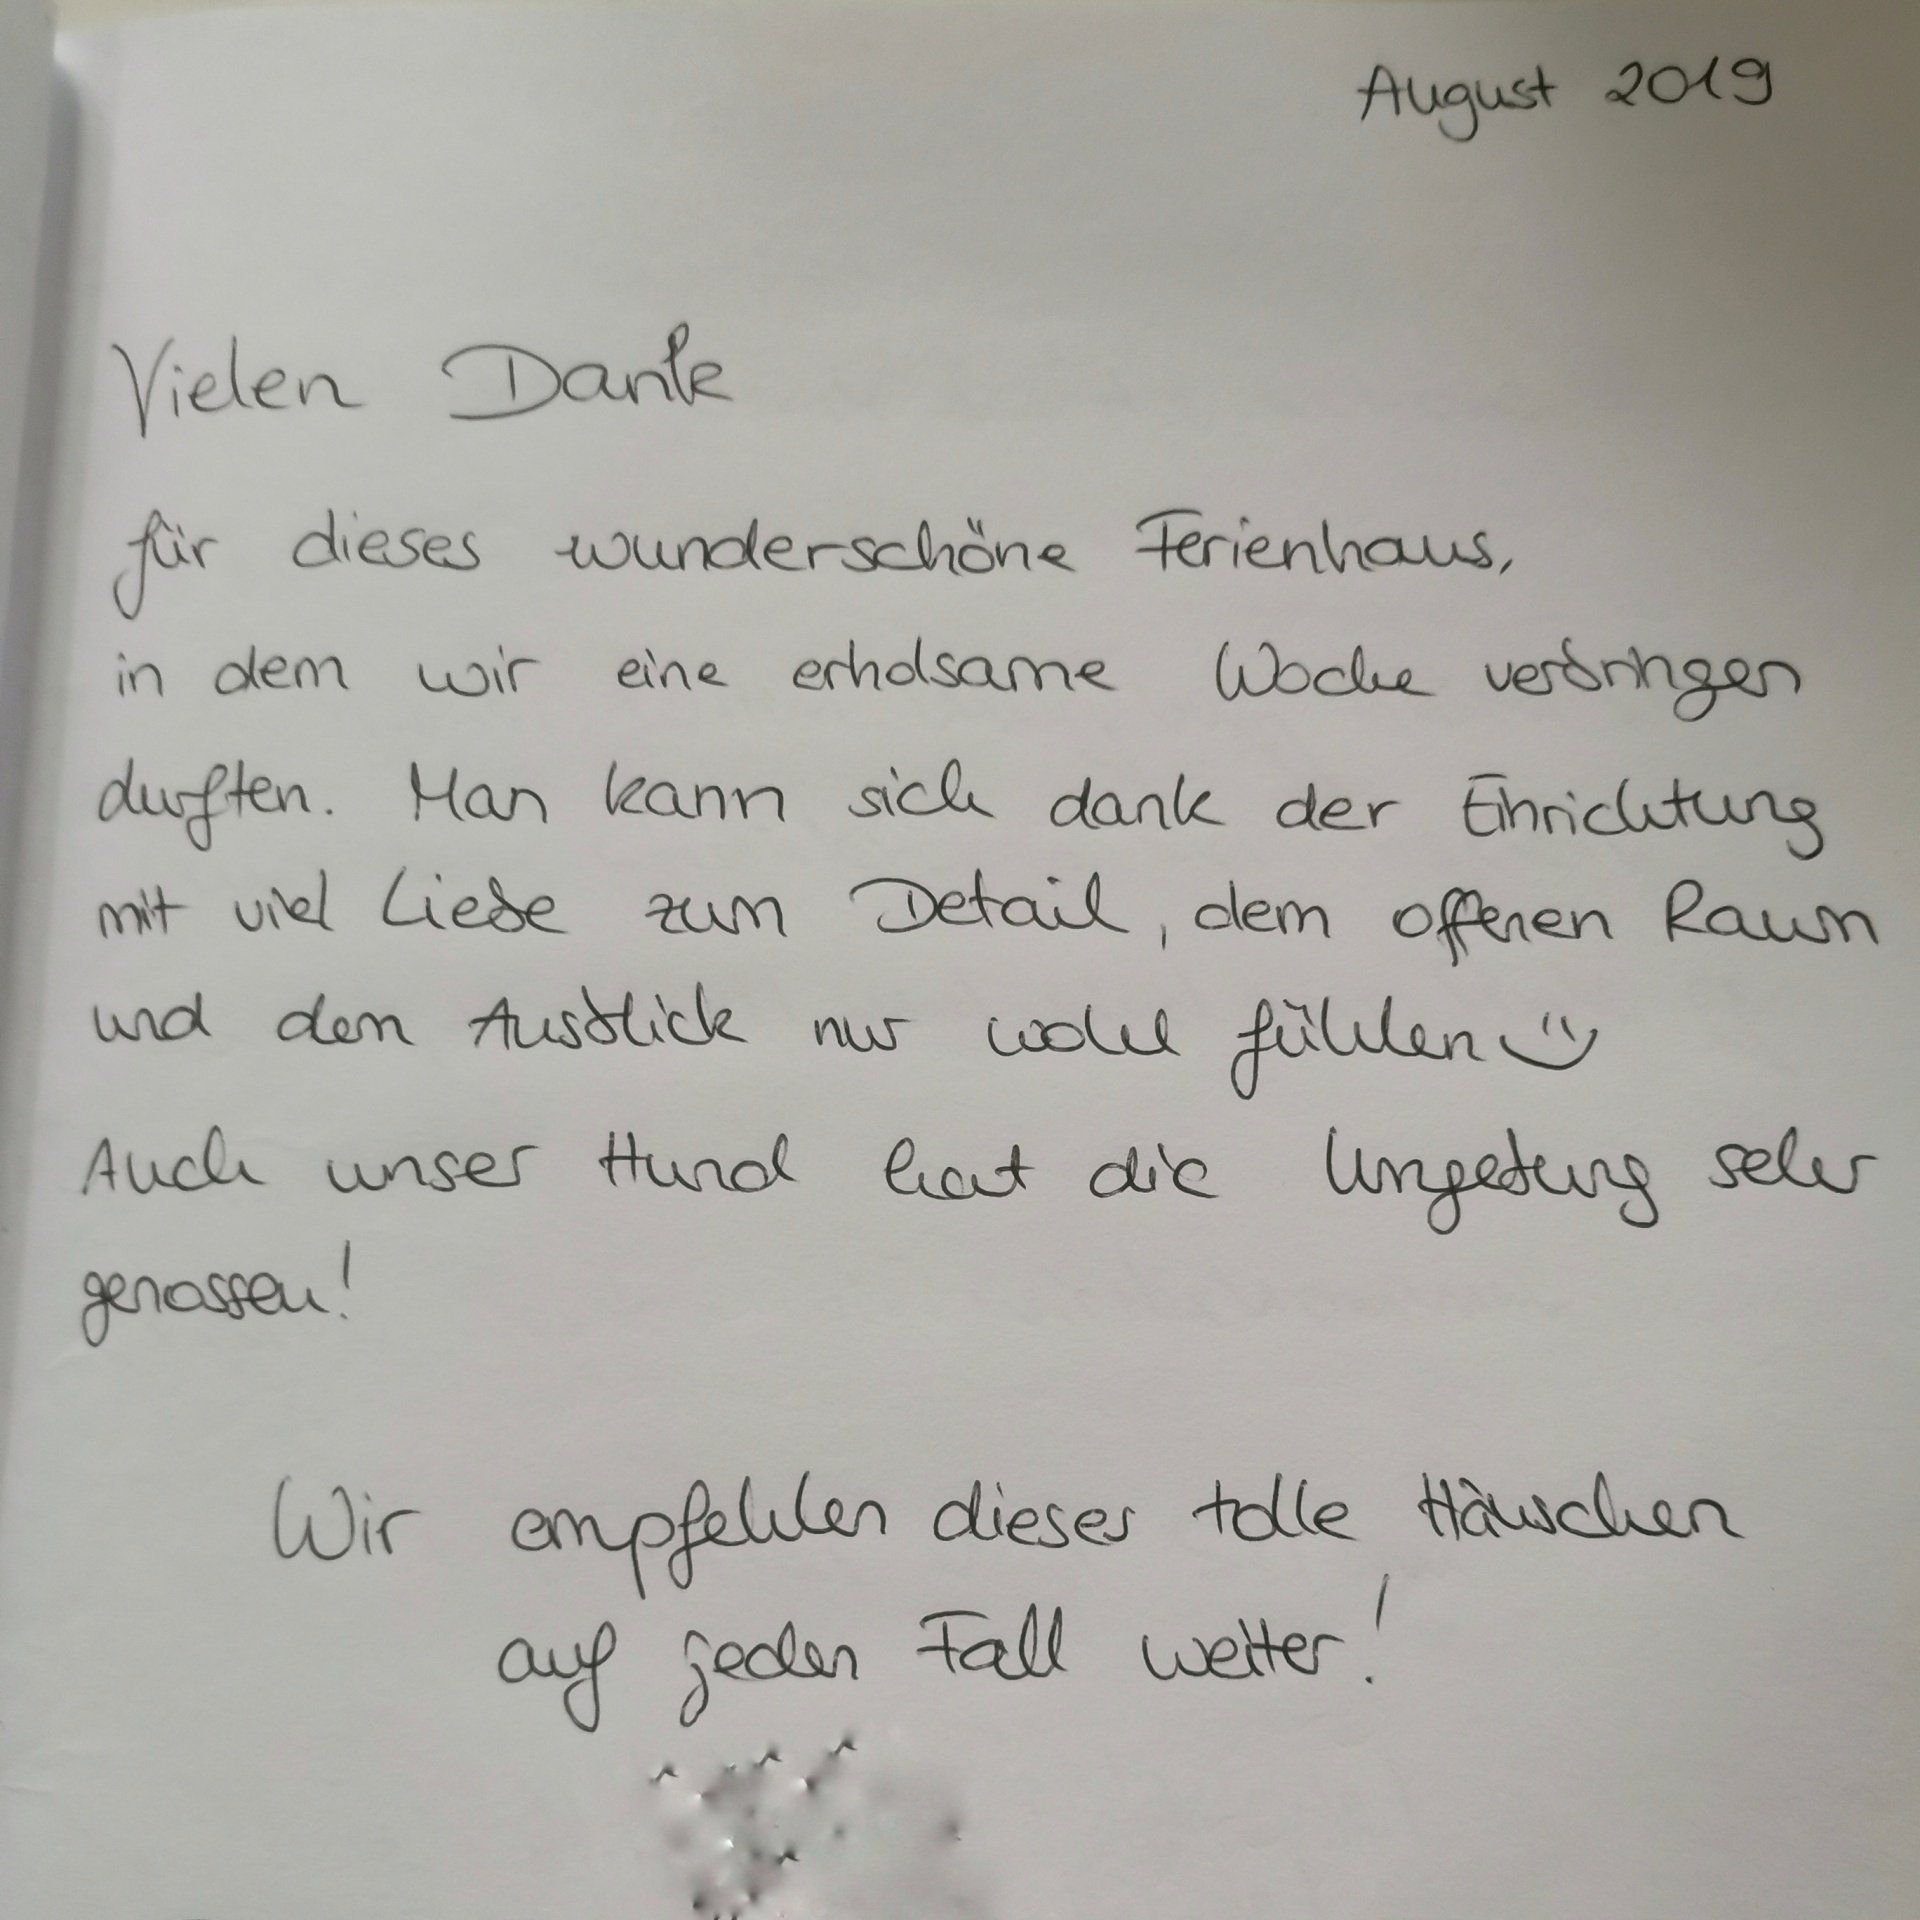 August 2019
Vielen Dank
für dieses wunderschöne Ferienhaus,
in dem wir eine erholsame Woche verbringen
durften. Man kann sich dank der Einrichtung
mit viel Liebe zum Detail, dem offenen Raum
und dem Ausblick nur wohl fühlen
Auch unser Hund hat die Umgebung sehr
genossen!
Wir empfehlen dieses tolle Häuschen
auf jeden Fall weiter!